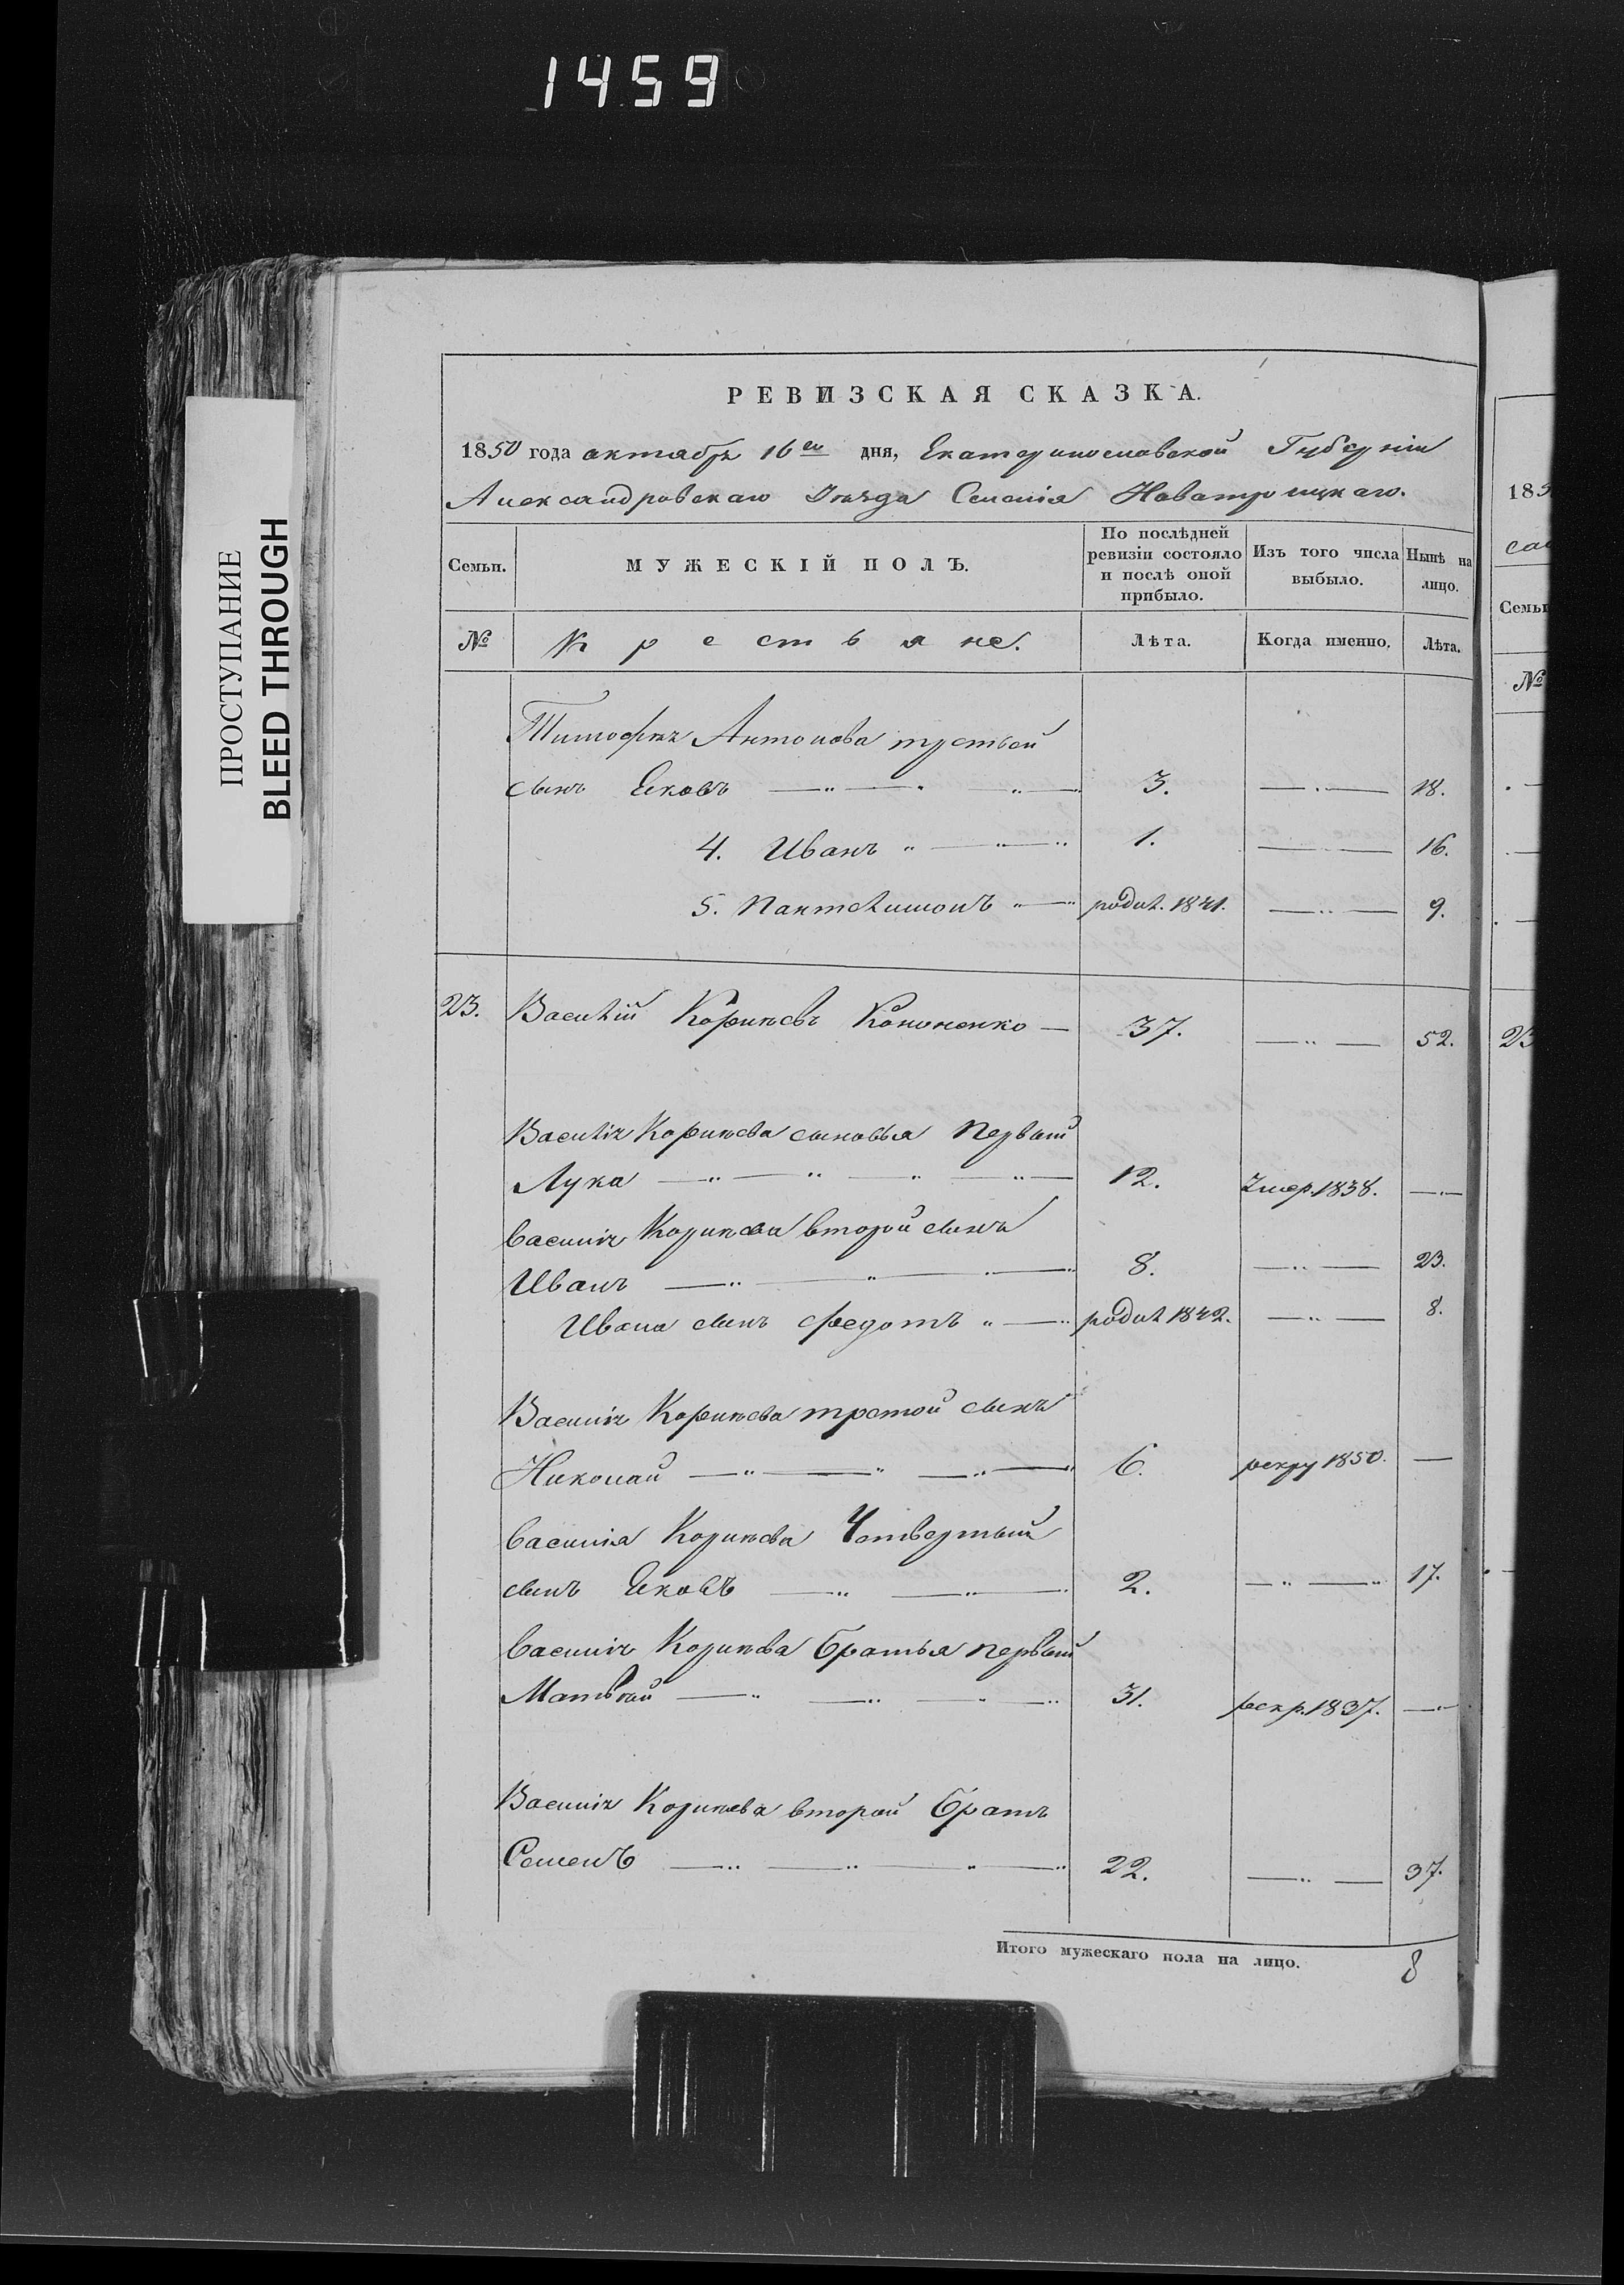 1459
ПРОСТУПАНИЕ
BLEED THROUGH
РЕВИЗСКАЯ СКАЗКА.
1850 года октября 16го дня, Екатеринославской Губерніи
Александровскаго Уѣзда Селенія Новотроицкаго.
Семьи. МУЖЕСКІЙ ПОЛЪ. По послѣдней ревизіи состояло и послѣ оной прибыло. Изъ того числа выбыло. Нынѣ на лицо.
№ Крестьяне. Лѣта. Когда именно. Лѣта.
Тимофѣя Антонова третьей
сынъ Яковъ 3. 18.
4. Иванъ 1. 16.
5. Пантелимонъ родил. 1841. 9.
23. Василій Корнѣевъ Кононенко 37. 52.
Василія Корнѣева сыновья первый
Лука 12. Умер. 1838.
Василія Корнѣева второй сынъ
Иванъ 8. 23.
Ивана сынъ Федотъ родил 1842. 8.
Василія Корнѣева третой сынъ
Николай 6. рекру 1850.
Василія Корнѣева Четвертый
сынъ Яковъ 2. 17.
Василія Корнѣева братья первый
Матвѣй 31. рекр. 1837.
Василія Корнѣева второй братъ
Семенъ 22. 37.
Итого мужескаго пола на лицо. 8
185
Семьи
№
23